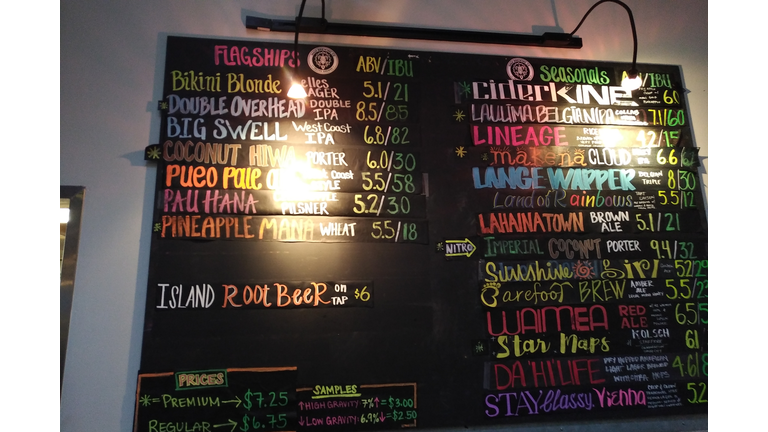 FLAGSHIPS ABV/IBU
Bikini Blonde LAGER 5.1/21
DOUBLE OVERHEAD DOUBLE IPA 8.5/85
BIG SWELL West Coast IPA 6.8/82
* COCONUT HIWA PORTER 6.0/30
PUEO PALE 5.5/58
PAU HANA PILSNER 5.2/30
PINEAPPLE MANA WHEAT 5.5/18
ISLAND ROOT BEER ON TAP $6
PRICES
*=PREMIUM→$7.25
REGULAR→$6.75
SAMPLES
↑HIGH GRAVITY 7%↑=$3.00
↓LOW GRAVITY 6.9%↓=$2.50
SEASONALS ABV/IBU
* CiderKINE 6.0
* LAULIMA BELGIAN IPA 7.1/60
LINEAGE 4.2/15
* makena CLOUD 6.6
LANGE WAPPER BELGIAN TRIPLE 8/30
Land of Rainbows 5.5/12
LAHAINATOWN BROWN ALE 5.1/21
NITRO IMPERIAL COCONUT PORTER 9.4/32
Sunshine girl 5.2/29
Barefoot BREW AMBER ALE 5.5/23
WAIMEA RED ALE
Star Maps KOLSCH
DA HILIFE 4.6/8
STAY Classy, Vienna 5.2